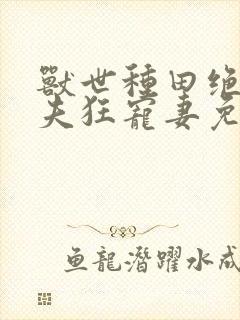 獸世種田绝
夫狂寵妻免
鱼龍潛躍水成